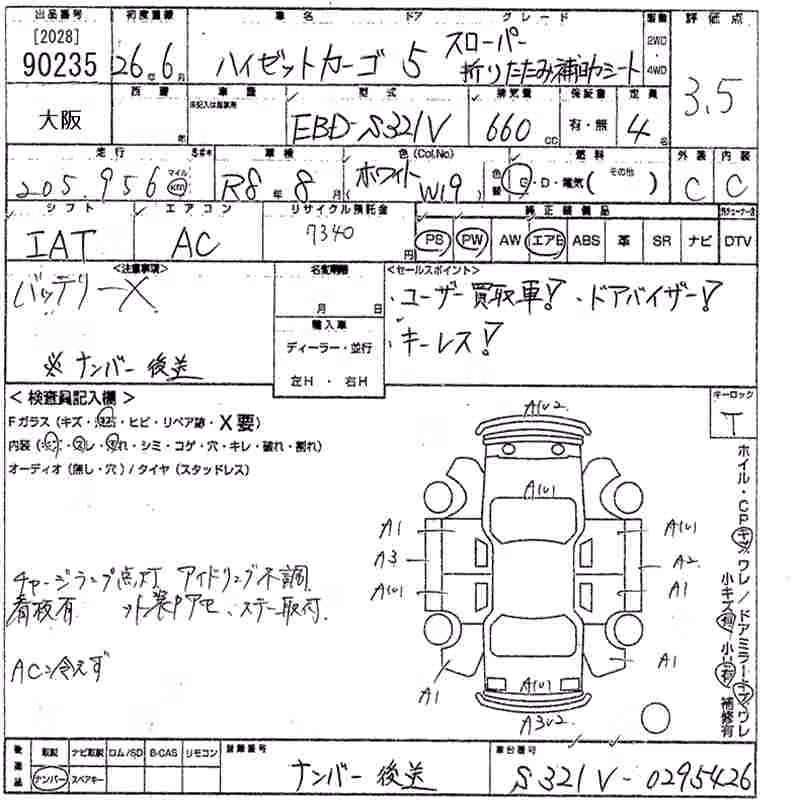 出品番号 初度登録 車名 ドア グレード 駆動 評価点
[2028]
90235 26年6月 ハイゼットカーゴ 5 スローパー 2WD
折りたたみ補助シート 4WD 3.5
車歴 型式 排気量 保証書 定員
大阪 年 EBD-S321V 660cc 有・無 4名
走行 車検 色(Col,No) 燃料 外装 内装
205,956 マイル km R8年8月 ホワイト W19 色替 G・D・電気(その他) C C
シフト エアコン リサイクル預託金 純正装備品
IAT AC 7340円 PS PW AW エアB ABS 革 SR ナビ DTV
<注意事項> 名変期限 <セールスポイント>
バッテリーX 月 日 ・ユーザー買取車! ・ドアバイザー!
輸入車 ・キーレス!
※ナンバー後送 ディーラー・並行
左H・右H
<検査員記入欄> キーロック
Fガラス(キズ・飛石・ヒビ・リペア跡・X要) T
内装(・スレ・汚れ・シミ・コゲ・穴・キレ・破れ・割れ)
オーディオ(無し・穴)/タイヤ(スタッドレス)
A1U2
A1U1
A1 A1U1
A3 A2
A1U1 A1
チャージランプ点灯 アイドリング不調
看板有 ステー取付
ACン冷えず
A1 A1
A1U1
A3U2
ホイル・CPキズ ワレ/ドアミラーキズ ワレ
小キズ有 小凹有 補修有
後送品 取説 ナビ取説 ロム/SD B-CAS リモコン 登録番号 車台番号
ナンバー スペアキー ナンバー後送 S321V-0295426